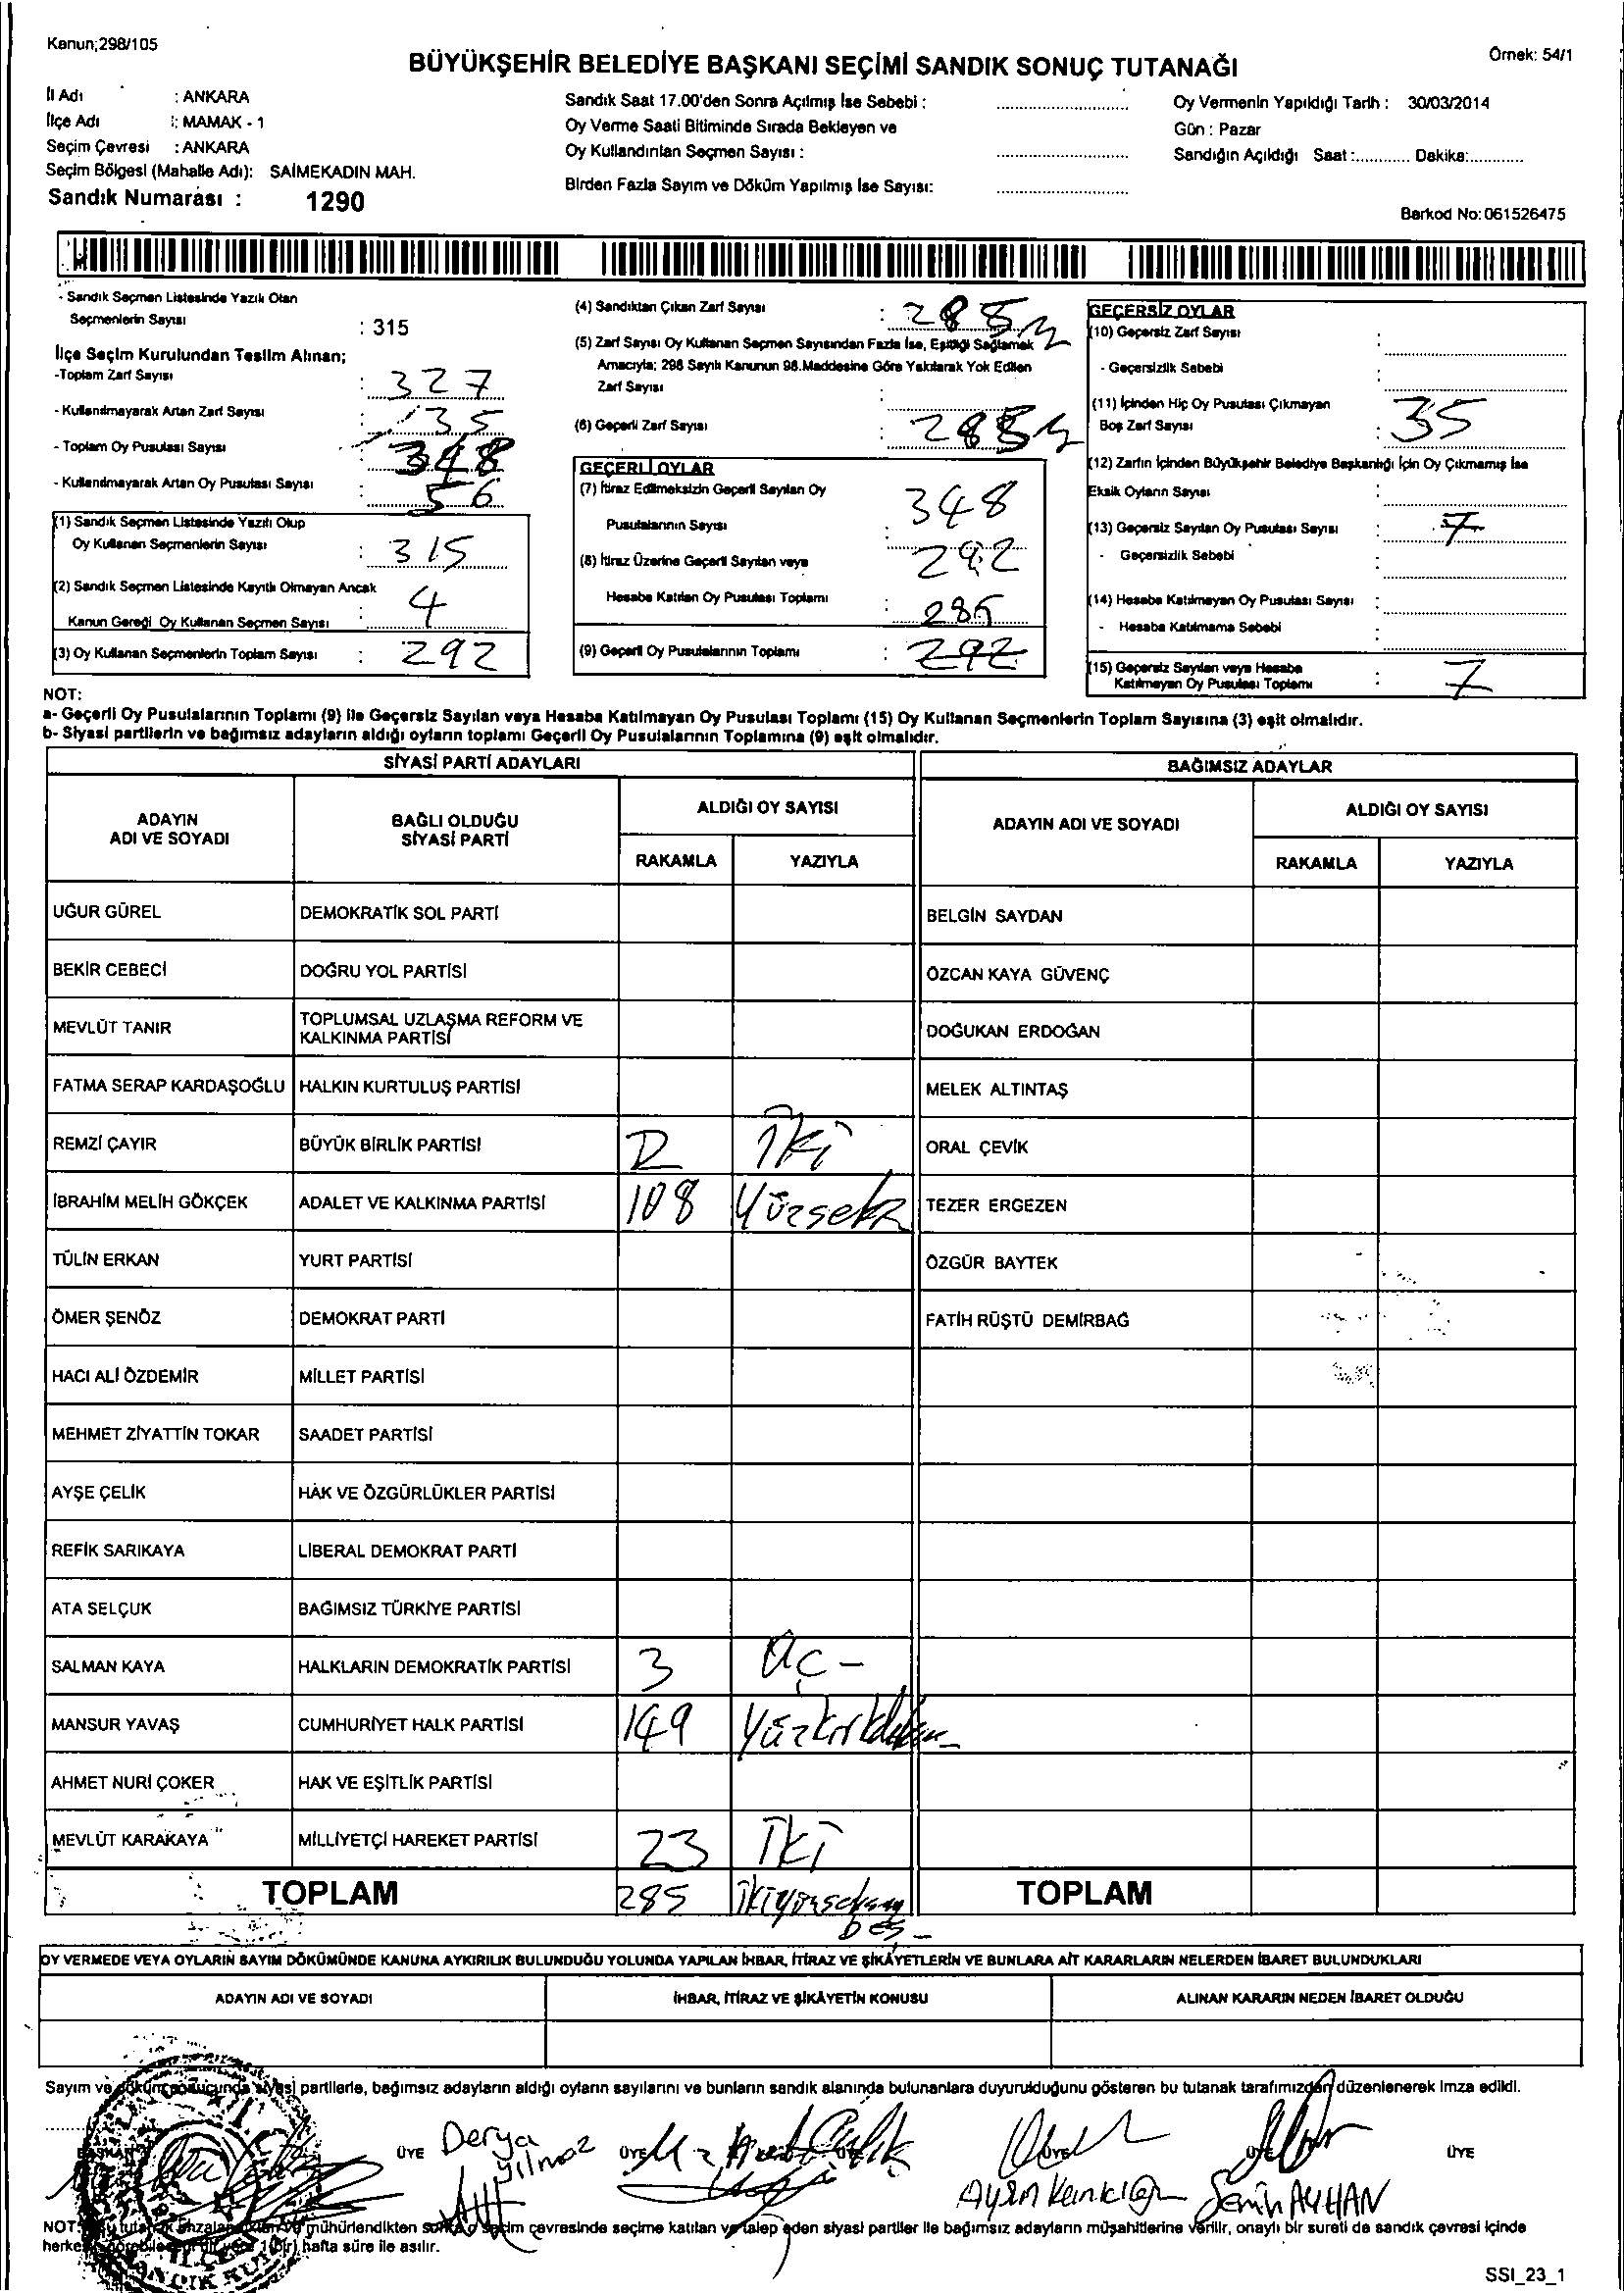 Kanun;298/105
Örnek: 54/1
BÜYÜKŞEHİR BELEDİYE BAŞKANI SEÇİMİ SANDIK SONUÇ TUTANAĞI
İl Adı : ANKARA
İlçe Adı : MAMAK - 1
Seçim Çevresi : ANKARA
Seçim Bölgesi (Mahalle Adı): SAİMEKADIN MAH.
Sandık Numarası : 1290
Sandık Saat 17.00'den Sonra Açılmış İse Sebebi :
Oy Verme Saati Bitiminde Sırada Bekleyen ve
Oy Kullandırılan Seçmen Sayısı :
Birden Fazla Sayım ve Döküm Yapılmış İse Sayısı:
Oy Vermenin Yapıldığı Tarih : 30/03/2014
Gün : Pazar
Sandığın Açıldığı Saat :............ Dakika:............
Barkod No: 061526475
- Sandık Seçmen Listesinde Yazılı Olan
Seçmenlerin Sayısı : 315
İlçe Seçim Kurulundan Teslim Alınan;
-Toplam Zarf Sayısı : 327
- Kullanılmayarak Artan Zarf Sayısı : 35
- Toplam Oy Pusulası Sayısı : 348
- Kullanılmayarak Artan Oy Pusulası Sayısı : 56
(1) Sandık Seçmen Listesinde Yazılı Olup
Oy Kullanan Seçmenlerin Sayısı : 315
(2) Sandık Seçmen Listesinde Kayıtlı Olmayan Ancak
Kanun Gereği Oy Kullanan Seçmen Sayısı : 4
(3) Oy Kullanan Seçmenlerin Toplam Sayısı : 292
(4) Sandıktan Çıkan Zarf Sayısı : 285
(5) Zarf Sayısı Oy Kullanan Seçmen Sayısından Fazla İse, Eşitliği Sağlamak
Amacıyla; 298 Sayılı Kanunun 98.Maddesine Göre Yakılarak Yok Edilen
Zarf Sayısı :
(6) Geçerli Zarf Sayısı : 285
GEÇERLİ OYLAR
(7) İtiraz Edilmeksizin Geçerli Sayılan Oy
Pusulalarının Sayısı : 348
(8) İtiraz Üzerine Geçerli Sayılan veya 292
Hesaba Katılan Oy Pusulası Toplamı : 285
(9) Geçerli Oy Pusulalarının Toplamı : 292
GEÇERSİZ OYLAR
(10) Geçersiz Zarf Sayısı :
- Geçersizlik Sebebi :
(11) İçinden Hiç Oy Pusulası Çıkmayan
Boş Zarf Sayısı : 35
(12) Zarfın İçinden Büyükşehir Belediye Başkanlığı İçin Oy Çıkmamış İse
Eksik Oyların Sayısı :
(13) Geçersiz Sayılan Oy Pusulası Sayısı : 7
- Geçersizlik Sebebi :
(14) Hesaba Katılmayan Oy Pusulası Sayısı :
- Hesaba Katılmama Sebebi :
(15) Geçersiz Sayılan veya Hesaba
Katılmayan Oy Pusulası Toplamı : 7
NOT:
a- Geçerli Oy Pusulalarının Toplamı (9) ile Geçersiz Sayılan veya Hesaba Katılmayan Oy Pusulası Toplamı (15) Oy Kullanan Seçmenlerin Toplam Sayısına (3) eşit olmalıdır.
b- Siyasi partilerin ve bağımsız adayların aldığı oyların toplamı Geçerli Oy Pusulalarının Toplamına (9) eşit olmalıdır.
SİYASİ PARTİ ADAYLARI
ADAYIN
ADI VE SOYADI
BAĞLI OLDUĞU
SİYASİ PARTİ
ALDIĞI OY SAYISI
RAKAMLA YAZIYLA
UĞUR GÜREL DEMOKRATİK SOL PARTİ
BEKİR CEBECİ DOĞRU YOL PARTİSİ
MEVLÜT TANIR TOPLUMSAL UZLAŞMA REFORM VE
KALKINMA PARTİSİ
FATMA SERAP KARDAŞOĞLU HALKIN KURTULUŞ PARTİSİ
REMZİ ÇAYIR BÜYÜK BİRLİK PARTİSİ 2 İKİ
İBRAHİM MELİH GÖKÇEK ADALET VE KALKINMA PARTİSİ 108 Yüzsekiz
TÜLİN ERKAN YURT PARTİSİ
ÖMER ŞENÖZ DEMOKRAT PARTİ
HACI ALİ ÖZDEMİR MİLLET PARTİSİ
MEHMET ZİYATTİN TOKAR SAADET PARTİSİ
AYŞE ÇELİK HAK VE ÖZGÜRLÜKLER PARTİSİ
REFİK SARIKAYA LİBERAL DEMOKRAT PARTİ
ATA SELÇUK BAĞIMSIZ TÜRKİYE PARTİSİ
SALMAN KAYA HALKLARIN DEMOKRATİK PARTİSİ 3 üç -
MANSUR YAVAŞ CUMHURİYET HALK PARTİSİ 149 Yüzkırkdokuz
AHMET NURİ ÇOKER HAK VE EŞİTLİK PARTİSİ
MEVLÜT KARAKAYA MİLLİYETÇİ HAREKET PARTİSİ 23 İKİ
TOPLAM 285 ikiyüzseksen
beş -
BAĞIMSIZ ADAYLAR
ADAYIN ADI VE SOYADI
ALDIĞI OY SAYISI
RAKAMLA YAZIYLA
BELGİN SAYDAN
ÖZCAN KAYA GÜVENÇ
DOĞUKAN ERDOĞAN
MELEK ALTINTAŞ
ORAL ÇEVİK
TEZER ERGEZEN
ÖZGÜR BAYTEK
FATİH RÜŞTÜ DEMİRBAĞ
TOPLAM
OY VERMEDE VEYA OYLARIN SAYIM DÖKÜMÜNDE KANUNA AYKIRILIK BULUNDUĞU YOLUNDA YAPILAN İHBAR, İTİRAZ VE ŞİKÂYETLERİN VE BUNLARA AİT KARARLARIN NELERDEN İBARET BULUNDUKLARI
ADAYIN ADI VE SOYADI
İHBAR, İTİRAZ VE ŞİKÂYETİN KONUSU
ALINAN KARARIN NEDEN İBARET OLDUĞU
Sayım ve döküm sonucunda siyasi partilerle, bağımsız adayların aldığı oyların sayılarını ve bunların sandık alanında bulunanlara duyurulduğunu gösteren bu tutanak tarafımızdan düzenlenerek imza edildi.
BAŞKAN
ÜYE Derya
Yılmaz
ÜYE
ÜYE
ÜYE
ÜYE Semih AYHAN
ÜYE
NOT: Bu tutanak imzalandıktan ve mühürlendikten sonra o seçim çevresinde seçime katılan ve talep eden siyasi partiler ile bağımsız adayların müşahitlerine verilir, onaylı bir sureti de sandık çevresi içinde
herkesin görebileceği bir yere 1(bir) hafta süre ile asılır.
SSI_23_1